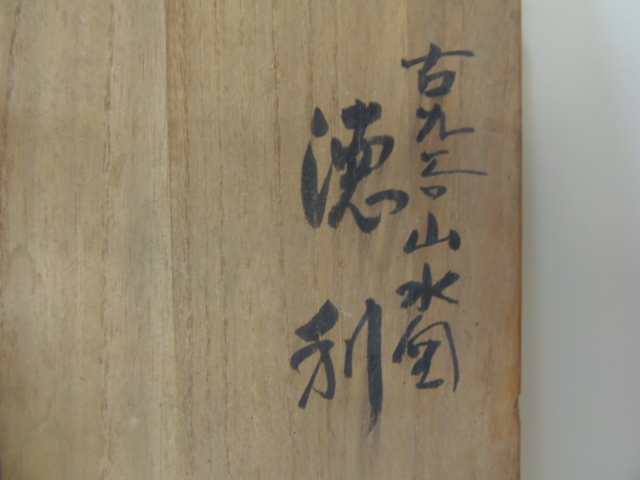 古九谷山水図
徳利